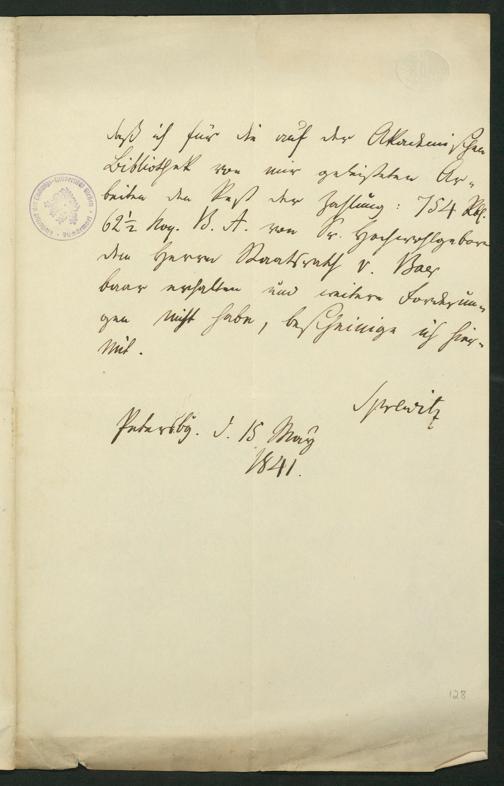 daß ich für die auf der Akademischen
Bibliothek von mir geleisteten Ar-
beiten den Rest der Zahlung: 754 Rbl.
62½ Kop. B. A. von Sr. Hochwohlgebor
dem Herrn Staatsrath v. Baer
baar erhalten und weitere Forderun-
gen nicht habe, bescheinige ich hier-
mit.
Sprewitz
Petersbg. d. 15 May
1841.
128